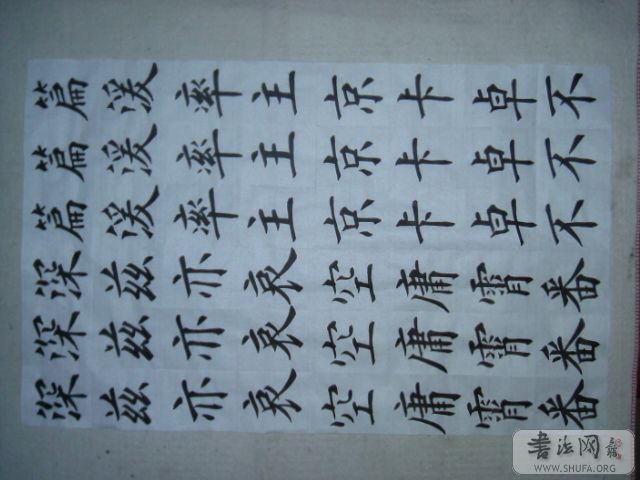 不不不番番番
卓卓卓霄霄霄
卡卡卡庸庸庸
京京京空空空
主主主哀哀哀
率率率亦亦亦
湲湲湲兹兹兹
篇篇篇深深深
书法网
WWW.SHUFA.ORG